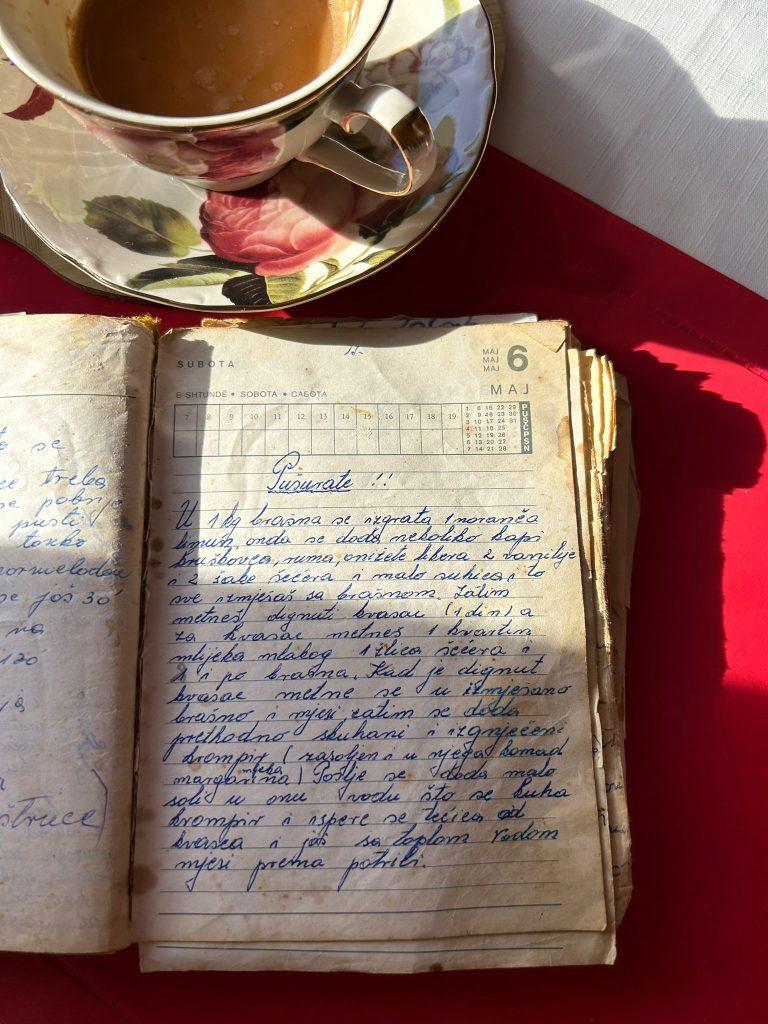 to se
treba
se pobrje
pusti
toxko
se još 30'
na
120
ja
a
štruce
18.
SUBOTA
MAJ
MAJ
MAJ
6
E SHTUNDË • SOBOTA • САБОТА
MAJ
7 8 9 10 11 12 13 14 15 16 17 18 19
1 8 15 22 29
2 9 16 23 30
3 10 17 24 31
4 11 18 25
5 12 19 26
6 13 20 27
7 14 21 28
PUSČPSN
Pušurate !!
U 1 kg brašna se izgrata 1 noranča
limun, onda se doda nekoliko kapi
kruškovca, ruma, anižete likera 2 vanilije
i 2 šake šećera i malo suhica, i to
sve izmješaš sa brašnom. Zatim
metneš dignuti kvasac (1 din) a
za kvasac metneš 1 kvartin
mlijeka mlakog 1 žlica šećera i
1 i po brašna. Kad je dignut
kvasac metne se u izmješano
brašno i mjesi, zatim se doda
prethodno skuhani i izgnječeni
krompir (zasoljen i u njega komad
margarina) Poslje se doda malo
mlika
soli u onu vodu što se kuha
krompir i ispere se tećica od
kvasca i još sa toplom vodom
mjesi prema potrebi.